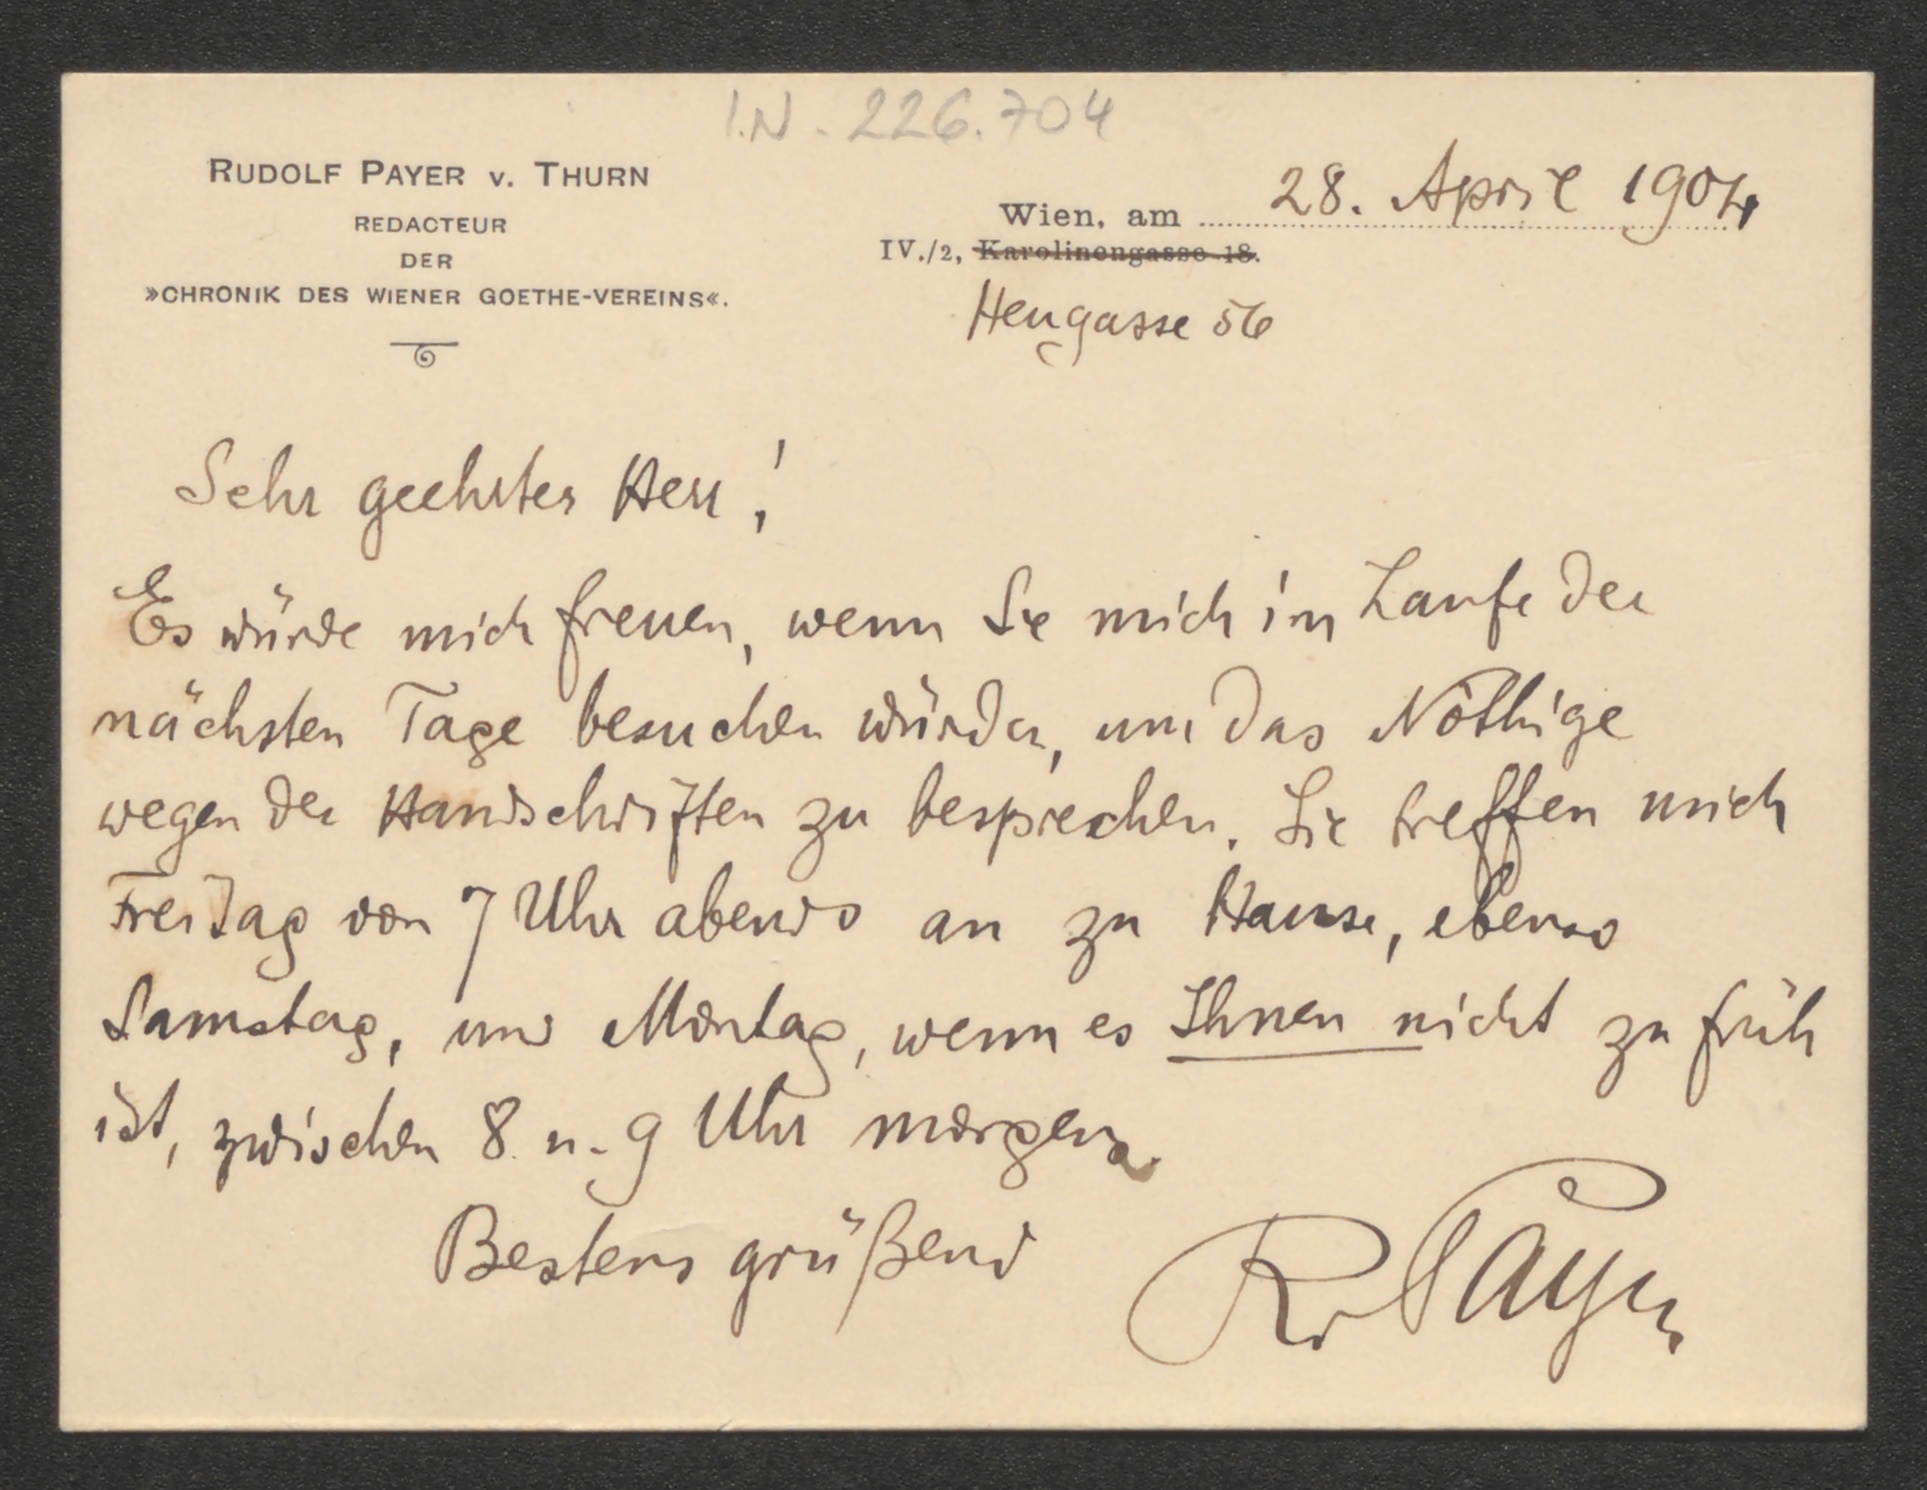 I.N. 226.704
RUDOLF PAYER v. THURN
REDACTEUR
DER
»CHRONIK DES WIENER GOETHE-VEREINS«.
Wien, am 28. April 1904
IV./2, Karolinengasse 18.
Heugasse 56
Sehr geehrter Herr!
Es würde mich freuen, wenn Sie mich im Laufe der
nächsten Tage besuchen würden, um das Nöthige
wegen der Handschriften zu besprechen. Sie treffen mich
Freitag von 7 Uhr abends an zu Hause, ebenso
Samstag, und Montag, wenn es Ihnen nicht zu früh
ist, zwischen 8 u. 9 Uhr morgens.
Bestens grüßend
Rv Payer